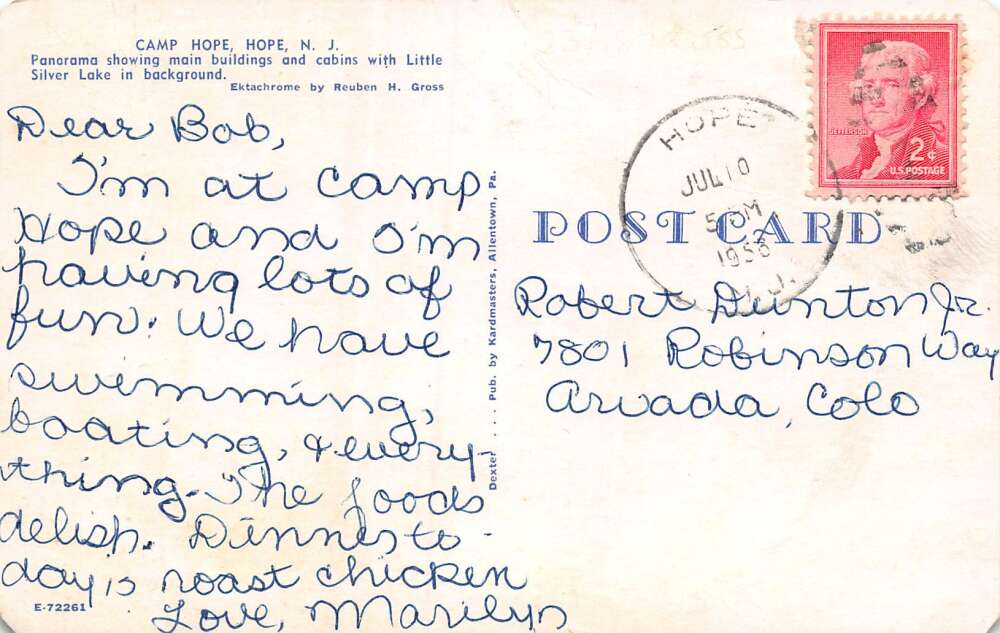 CAMP HOPE, HOPE, N. J.
Panorama showing main buildings and cabins with Little
Silver Lake in background.
Ektachrome by Reuben H. Gross
Dear Bob,
I'm at camp
Hope and I'm
having lots of
fun. We have
swimming,
boating, & every-
thing. The foods
delish. Dinners to-
day is roast chicken
Love, Marilyn
E-72261
Dexter ... Pub. by Kardmasters, Allentown, Pa.
POST CARD
HOPE
JUL 10
5 PM
N.J.
JEFFERSON
2¢
U.S. POSTAGE
Robert Dunton Jr.
7801 Robinson Way
Arvada, Colo